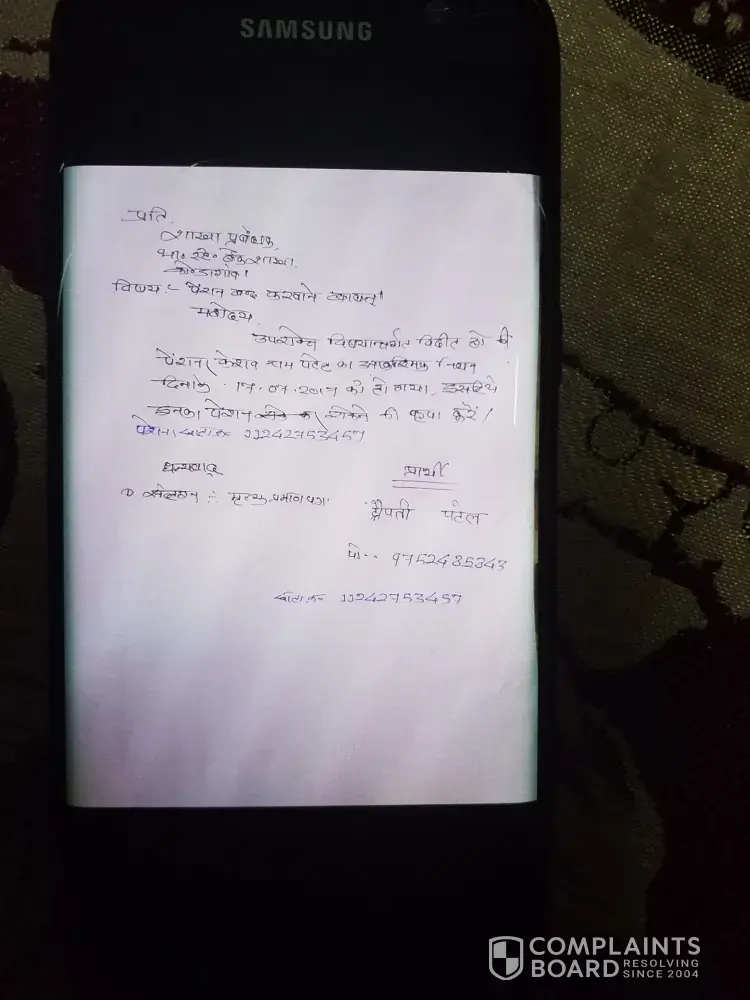 SAMSUNG
प्रति,
शाखा प्रबंधक,
भा. स्टे. बैंक शाखा,
कोन्डागांव।
विषय :- पेंशन बन्द करवाने बाबत्।
महोदय,
उपरोक्त विषयान्तर्गत विदित हो की
पेंशनर केशव राम पटेल का आकस्मिक निधन
दिनांक को हो गया, इसलिये
इनका पेंशन रोकने की कृपा करें।
खाता.क्र. 11242753457
धन्यवाद
प्रार्थी
① संलग्न :- मृत्यु प्रमाण पत्र
द्रौपती पटेल
मो.- 9752485343
खाता.क्र. 11242753457
COMPLAINTS
BOARD RESOLVING
SINCE 2004